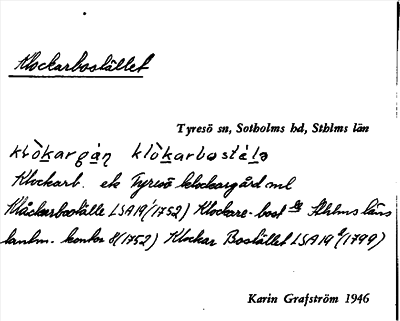 Klockarbostället
Tyresö sn, Sotholms hd, Sthlms län
klòkargán klòkarbostélə
Klockarb. ek Tyresö klockargård ml
Klåckarboställe LSA 19 (1752) Klockare-bost Sthlms läns
lantm. kontor 8 (1752) Klockar Bostället LSA 19 (1799)
Karin Grafström 1946